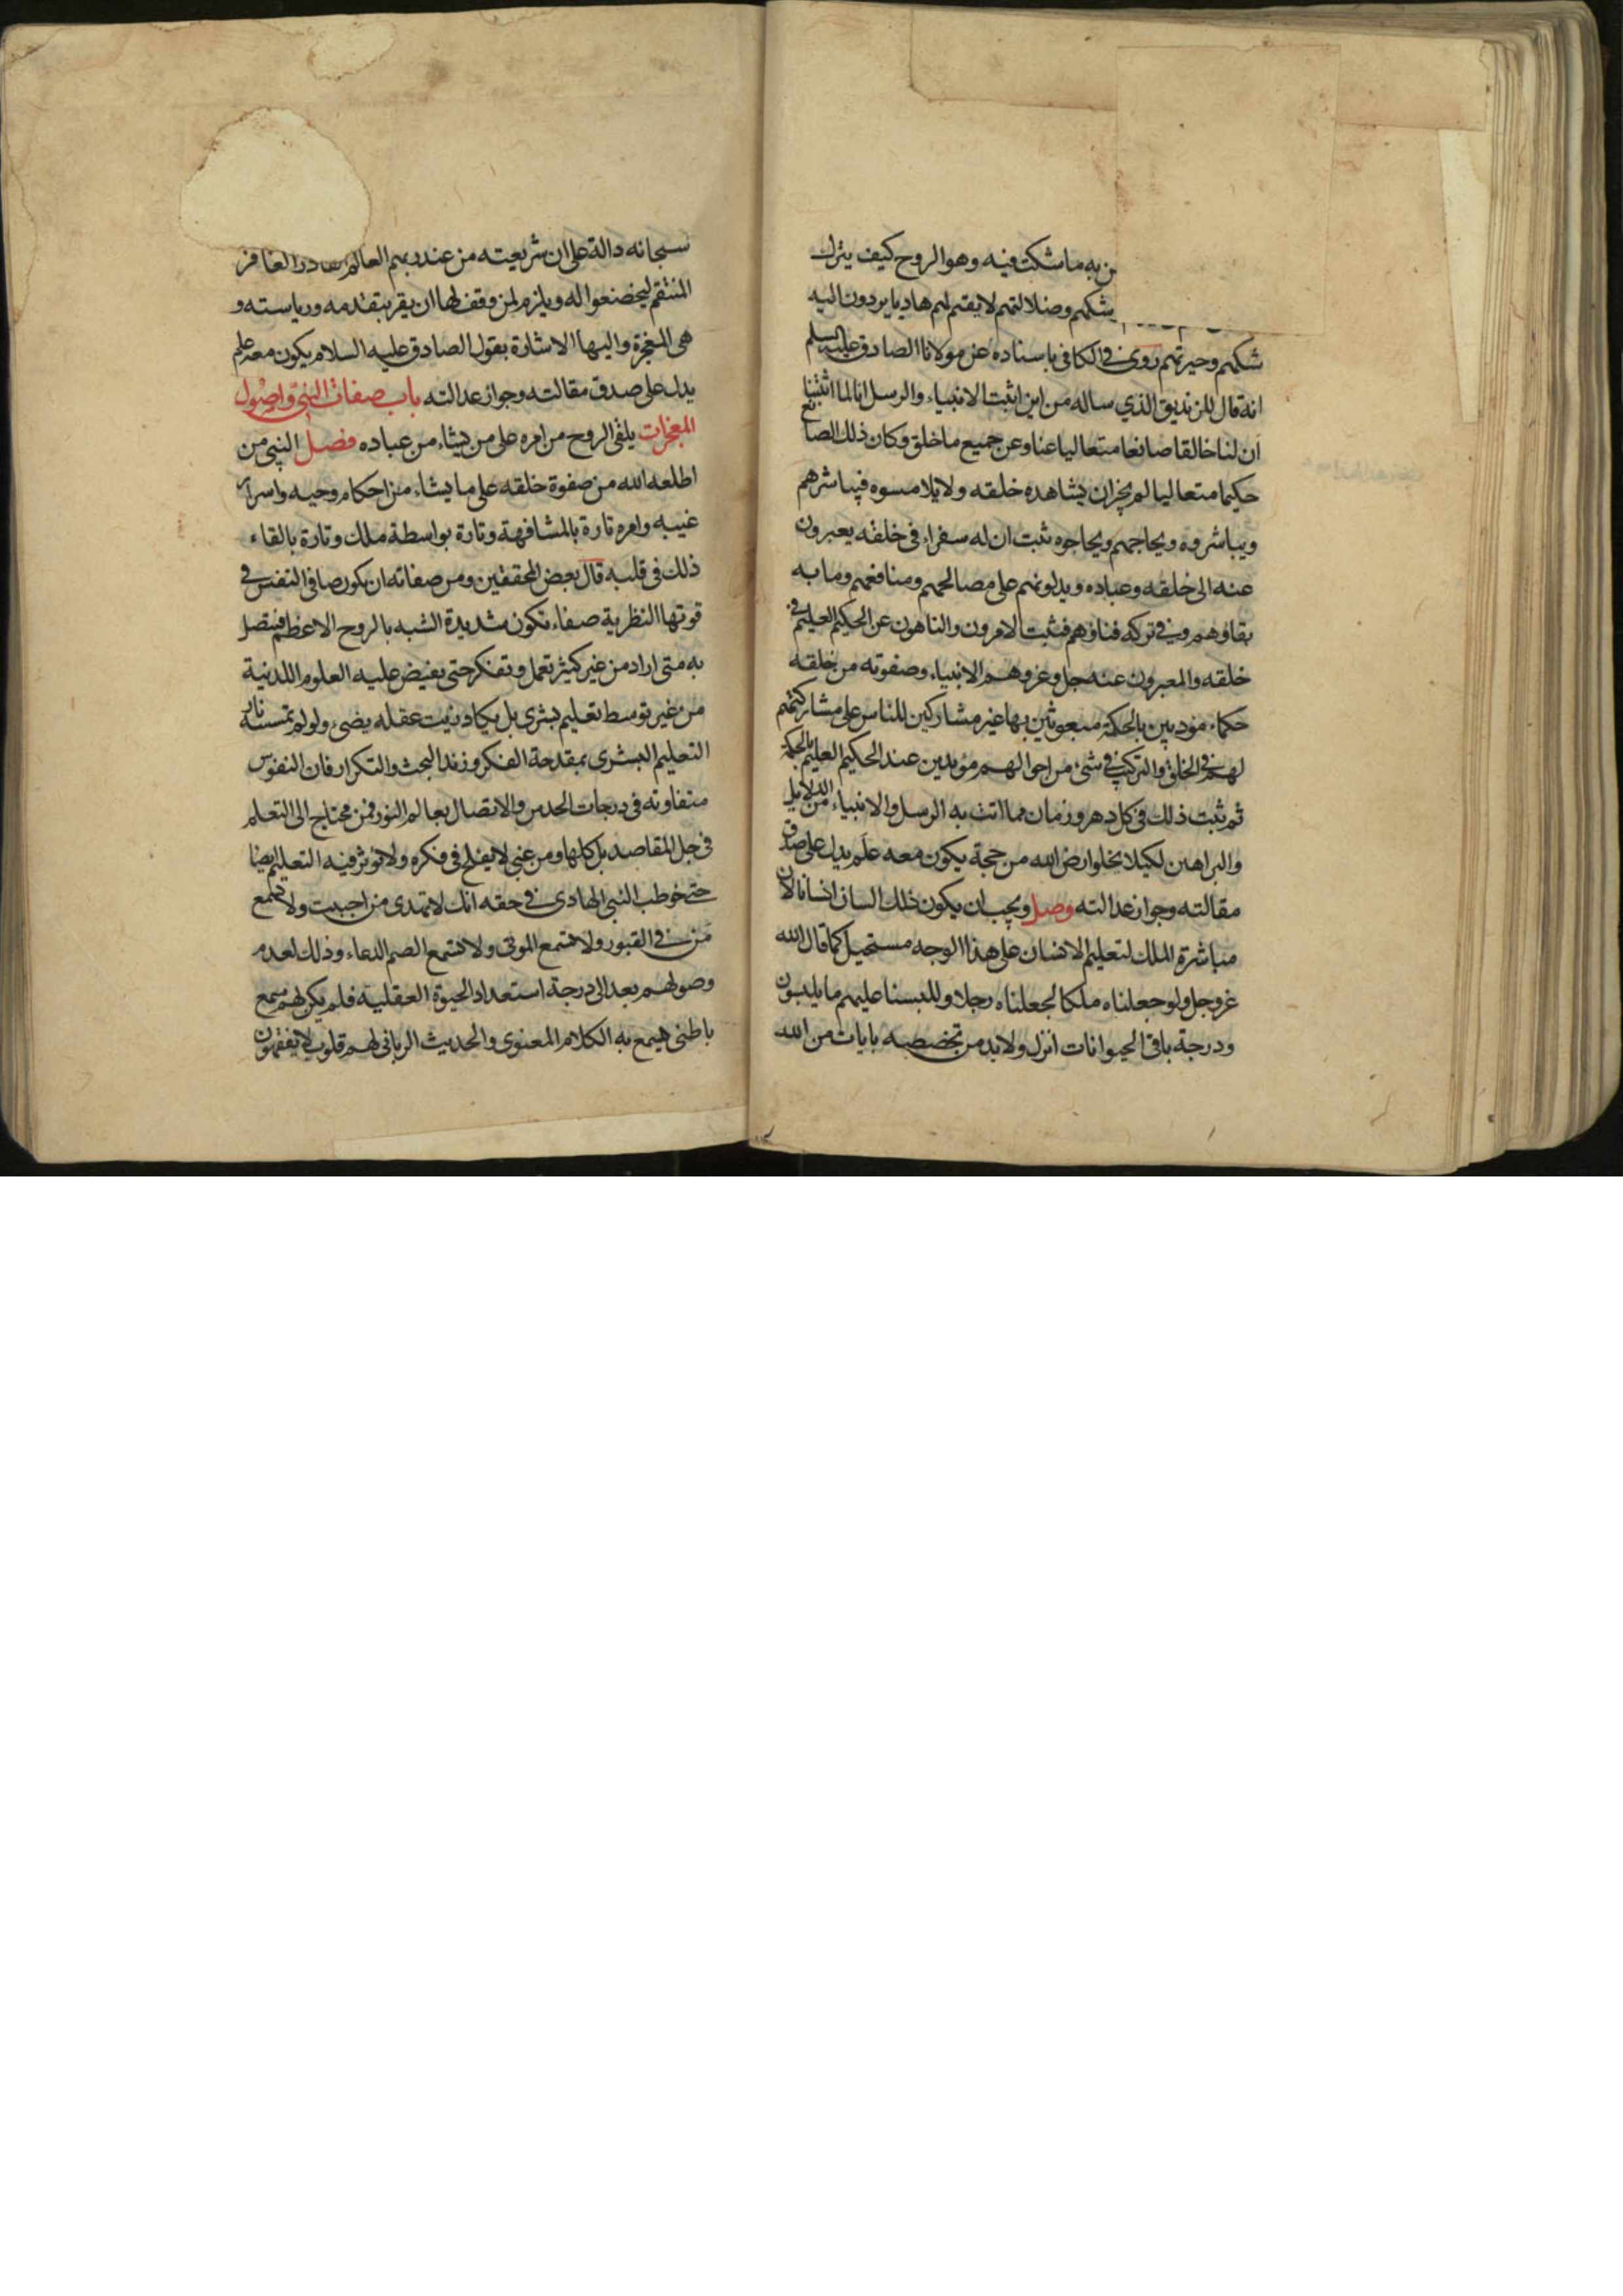 به ما شكت فيه وهو الروح كيف يترك
شكهم وضلالتهم لا يقيم لهم هاديا يردون اليه
شكهم وحيرتهم روى فى الكافى باسناده عن مولانا الصادق عليه السلم
انه قال للزنديق الذي ساله من اين اثبت الانبياء والرسل انا لما اثبتنا
ان لنا خالقا صانعا متعاليا عنا وعن جميع ما خلق وكان ذلك الصانع
حكيما متعاليا لم يجزان يشاهده خلقه ولا يلامسوه فيباشرهم
ويباشروه ويحاجهم ويحاجوه ثبت ان له سفراء فى خلقه يعبرون
عنه الى خلقه وعباده ويدلونهم على مصالحهم ومنافعهم وما به
بقاؤهم وفى تركه فناؤهم فثبت الامرون والناهون عن الحكيم العليم فى
خلقه والمعبرون عنه جل وعز وهم الانبياء وصفوته من خلقه
حكماء مؤدبين بالحكمة مبعوثين بها غير مشاركين للناس على مشاركتهم
لهم فى الخلق والتركيب فى شئ من احوالهم مؤيدين عند الحكيم العليم بالحكمة
ثم ثبت ذلك فى كل دهر وزمان مما اتت به الرسل والانبياء من الدلايل
والبراهين لكيلا يخلوا رض الله من حجة يكون معه علم يدل على صدق
مقالته وجواز عدالته وصل ويجب ان يكون ذلك السان انسانا لان
مباشرة الملك لتعليم الانسان على هذا الوجه مستحيل كما قال الله
عز وجل ولو جعلناه ملكا لجعلناه رجلا وللبسنا عليهم ما يلبسون
ودرجة باقى الحيوانات انزل ولابد من تخصصه بايات من الله
سبحانه دالة على ان شريعته من عند ربهم العالم القادر الغافر
المنتقم ليخضعوا له ويلزم لمن وقف لها ان يقر بتقدمه ورياسته و
هى المعجزة واليها الاشارة بقول الصادق عليه السلام يكون معه علم
يدل على صدق مقالته وجواز عدالته باب صفات النبى واصول
المعجزات يلقى الروح من امره على من يشاء من عباده فصل النبى من
اطلعه الله من صفوة خلقه على ما يشاء من احكام وحيه واسرار
غيبه وامره تارة بالمشافهة وتارة بواسطة ملك وتارة بالقاء
ذلك فى قلبه قال بعض المحققين ومن صفاته ان يكون صافى النفس فى
قوتها النظرية صفاء تكون شديدة الشبه بالروح الاعظم فيتصل
به متى اراد من غير كثير تعمل وتفكر حتى يفيض عليه العلوم اللدنية
من غير توسط تعليم بشرى بل يكاد زيت عقله يضئ ولو لم تمسسه نار
التعليم البشرى بمقدحة الفكر وزند البحث والتكرار فان النفوس
متفاوتة فى درجات الحدس والاتصال بعالم النور فمن محتاج الى التعلم
فى جل المقاصد بل كلها ومن غبى لا يفلح فى فكره ولا يؤثر فيه التعليم ايضا
حتى خوطب النبى الهادى فى حقه انك لا تهدى من احببت ولا تسمع
من فى القبور ولا تسمع الموتى ولا تسمع الصم الدعاء وذلك لعدم
وصولهم بعد الى درجة استعداد الحيوة العقلية فلم يكن لهم سمع
باطنى يسمع به الكلام المعنوى والحديث الربانى لهم قلوب لا يفقهون